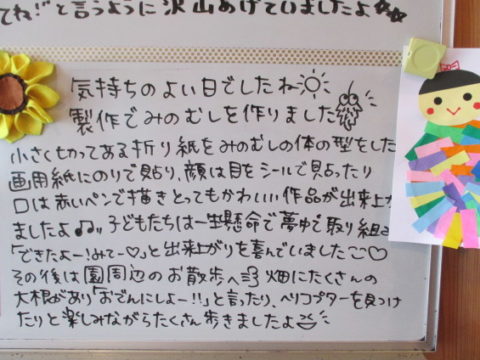 てね!!"と言うように沢山あげていましたよ☆☆
気持ちのよい日でしたね
製作でみのむしを作りました
小さく切ってある折り紙をみのむしの体の型をした
画用紙にのりで貼り、顔は目をシールで貼ったり
口は赤いペンで描きとってもかわいい作品が出来上が
ましたよ♫。子どもたちは一生懸命で夢中で取り組み
「できたよー!みてー♡」と出来上がりを喜んでいました♡
その後は園周辺のお散歩へ 畑にたくさんの
大根があり「おでんにしよー!!」と言ったり、ヘリコプターを見つけ
たりと楽しみながらたくさん歩きましたよ